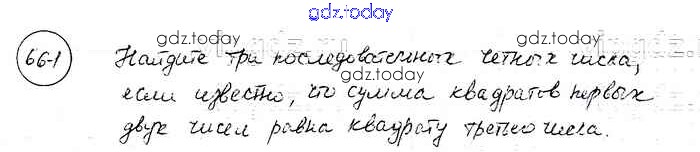 gdz.today
gdz.today gdz.today
66-1 Найдите три последовательных четных числа,
gdz.today gdz.today
если известно, что сумма квадратов первых
двух чисел равна квадрату третьего числа.